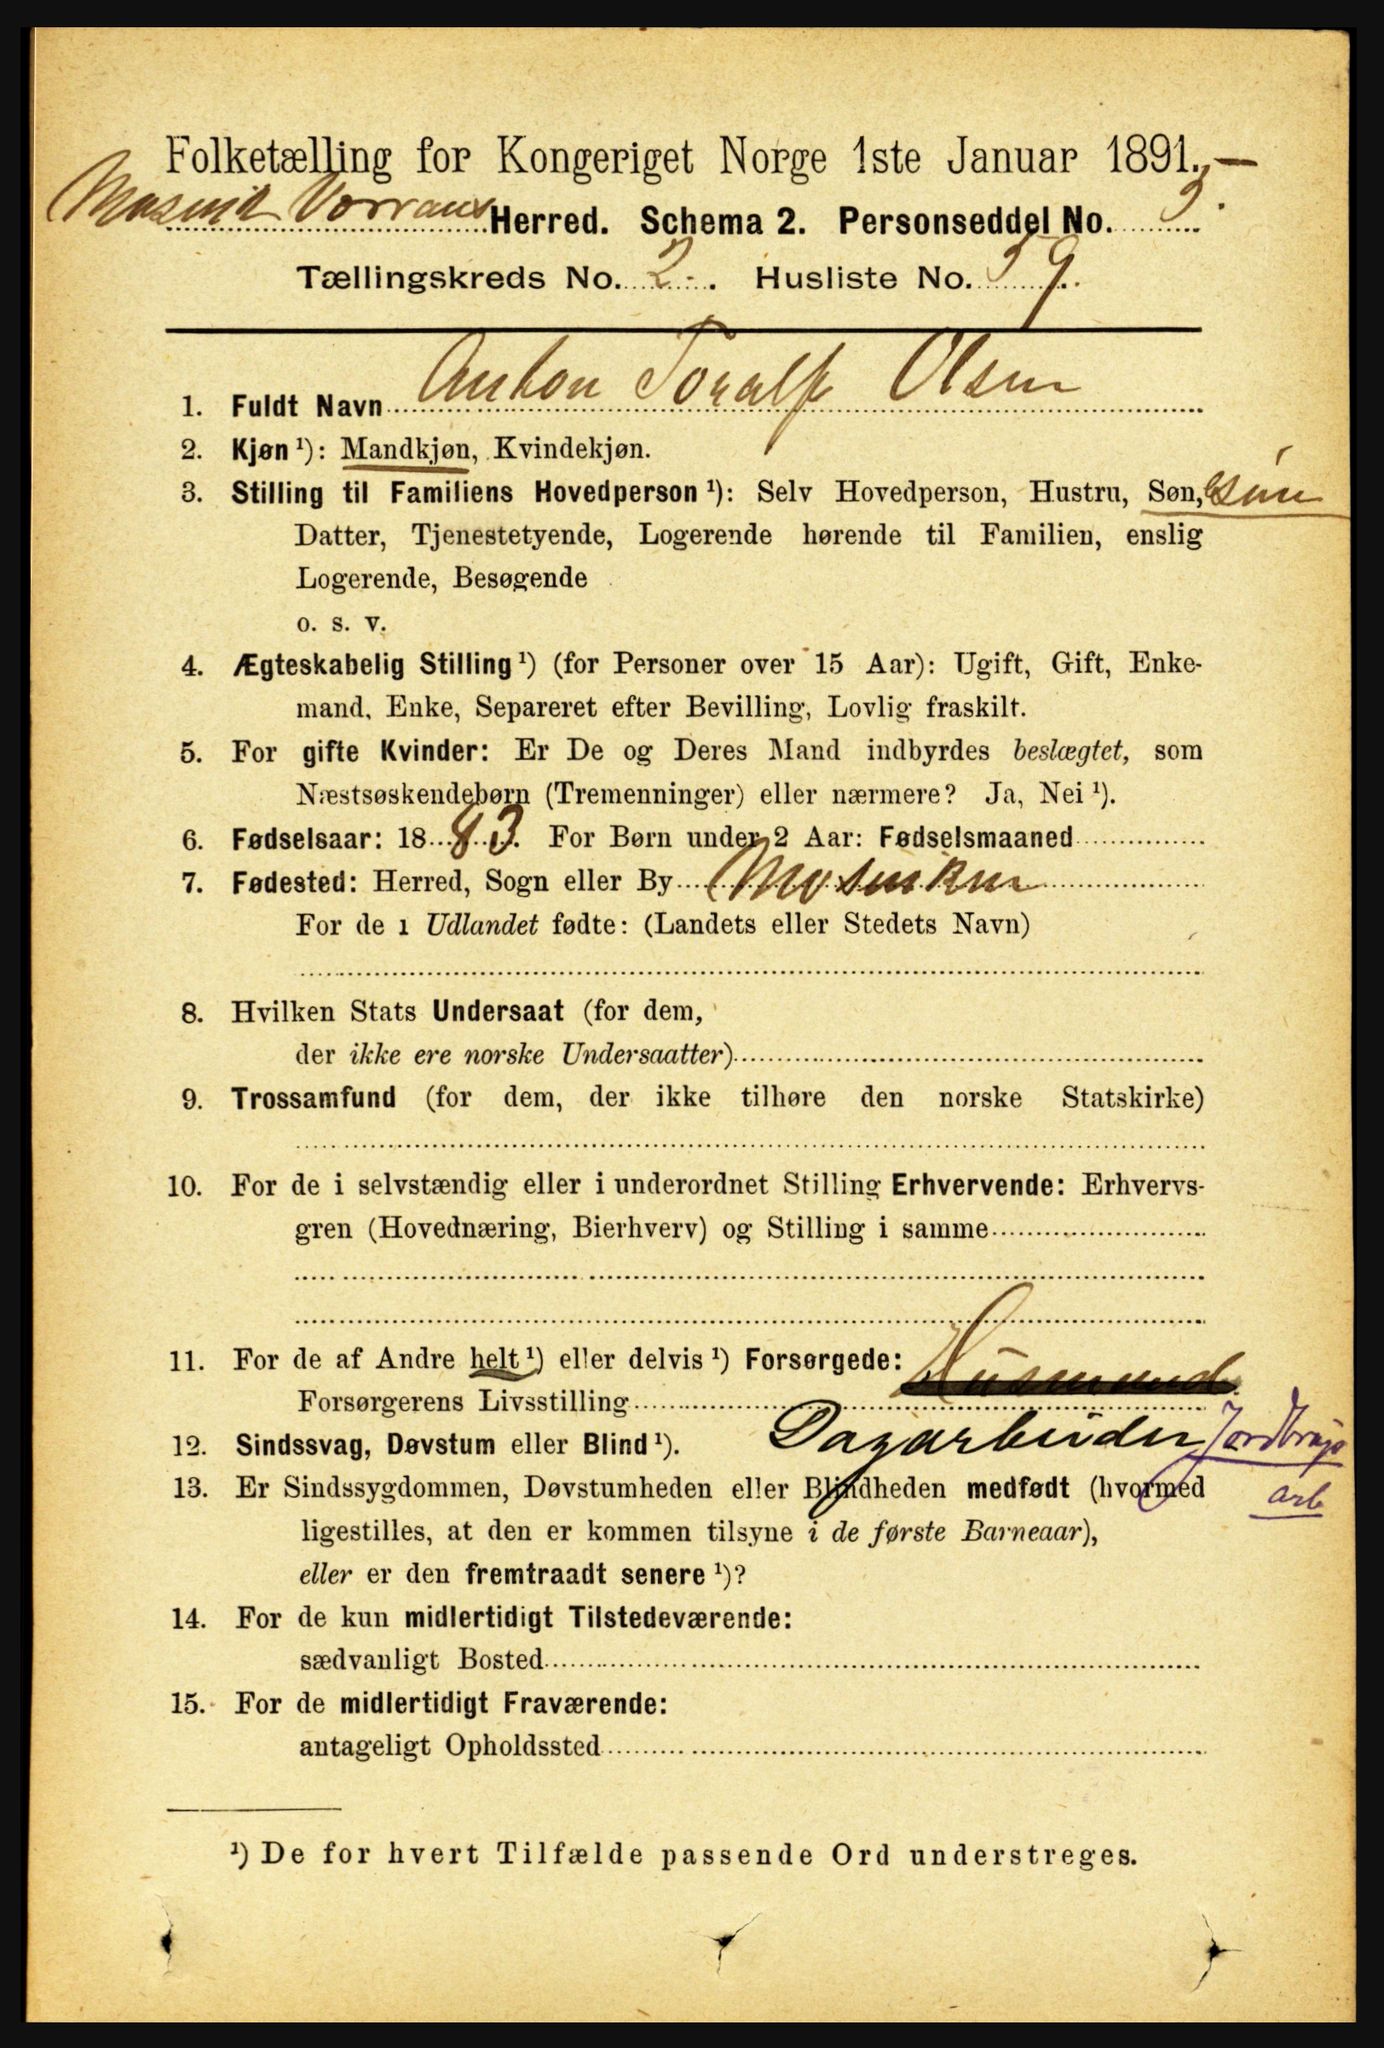 Folketælling for Kongeriget Norge 1ste Januar 1891.
Mosvik Vorrans Herred. Schema 2. Personseddel No. 3.
Tællingskreds No. 2. Husliste No. 39.
1. Fuldt Navn Anton Toralf Olsen
2. Kjøn ¹): Mandkjøn, Kvindekjøn.
3. Stilling til Familiens Hovedperson ¹): Selv Hovedperson, Hustru, Søn,
Datter, Tjenestetyende, Logerende hørende til Familien, enslig
Logerende, Besøgende
o. s. v.
4. Ægteskabelig Stilling ¹) (for Personer over 15 Aar): Ugift, Gift, Enke-
mand, Enke, Separeret efter Bevilling, Lovlig fraskilt.
5. For gifte Kvinder: Er De og Deres Mand indbyrdes beslægtet, som
Næstsøskendebørn (Tremenninger) eller nærmere? Ja, Nei ¹).
6. Fødselsaar: 1883. For Børn under 2 Aar: Fødselsmaaned
7. Fødested: Herred, Sogn eller By
For de i Udlandet fødte: (Landets eller Stedets Navn)
8. Hvilken Stats Undersaat (for dem,
der ikke ere norske Undersaatter)
9. Trossamfund (for dem, der ikke tilhøre den norske Statskirke)
10. For de i selvstændig eller i underordnet Stilling Erhvervende: Erhvervs-
gren (Hovednæring, Bierhverv) og Stilling i samme
11. For de af Andre helt ¹) eller delvis ¹) Forsørgede:
Forsørgerens Livsstilling Husmand
12. Sindssvag, Døvstum eller Blind ¹). Dagarbeider Jordbrugs
13. Er Sindssygdommen, Døvstumheden eller Blindheden medfødt (hvormed arb
ligestilles, at den er kommen tilsyne i de første Barneaar),
eller er den fremtraadt senere ¹)?
14. For de kun midlertidigt Tilstedeværende:
sædvanligt Bosted
15. For de midlertidigt Fraværende:
antageligt Opholdssted
¹) De for hvert Tilfælde passende Ord understreges.